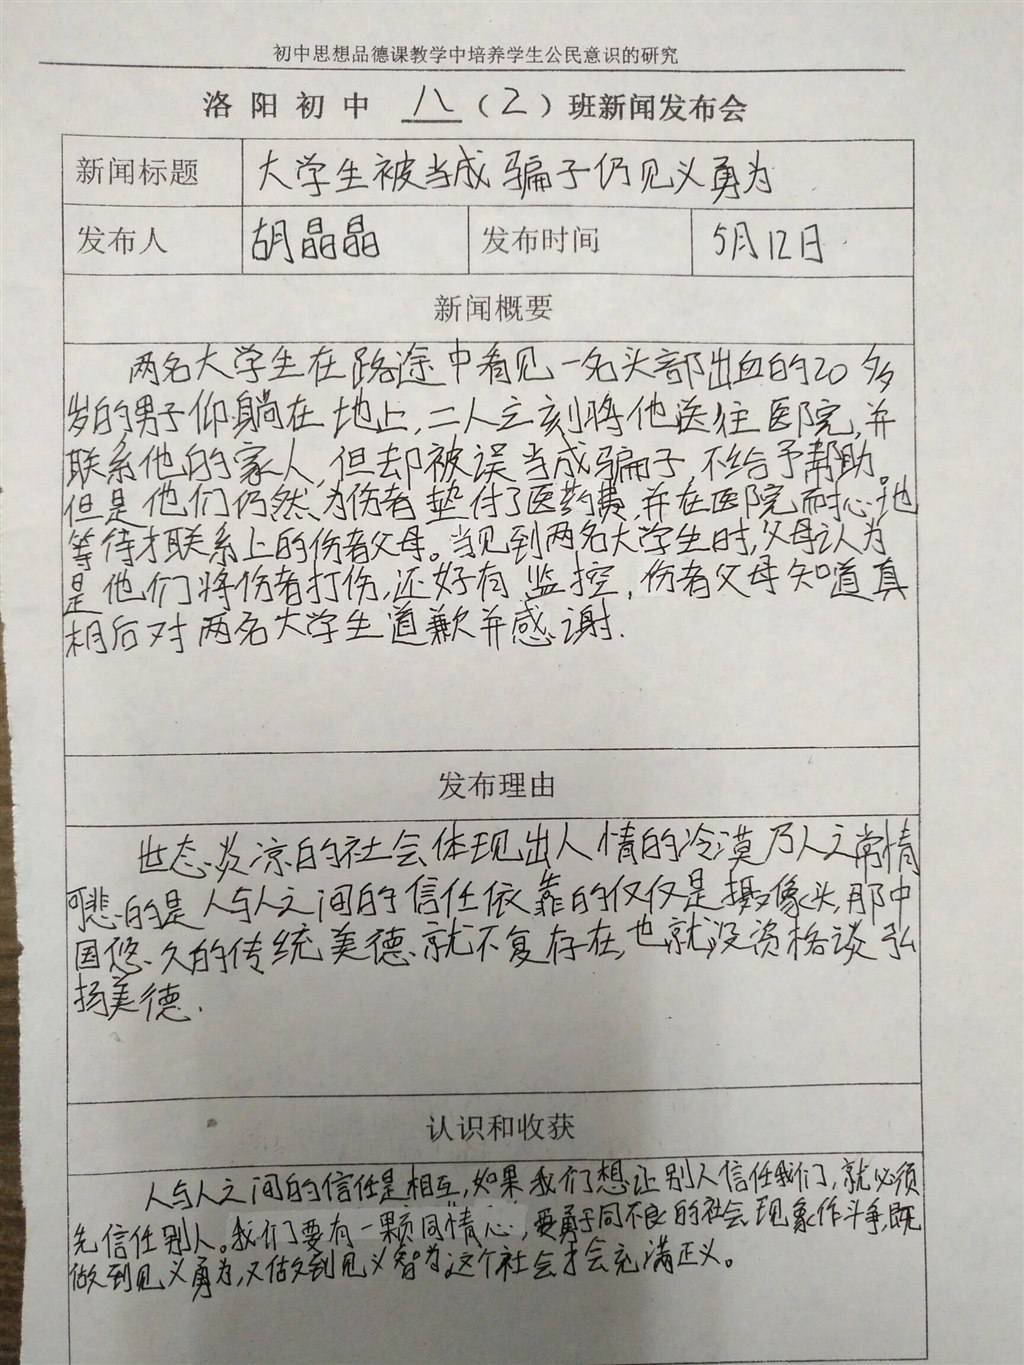 初中思想品德课教学中培养学生公民意识的研究
洛阳初中 八（2）班新闻发布会
新闻标题 大学生被当成骗子仍见义勇为
发布人 胡晶晶 发布时间 5月12日
新闻概要
两名大学生在路途中看见一名头部出血的20多
岁的男子仰躺在地上,二人立刻将他送往医院,并
联系他的家人,但却被误当成骗子,不给予帮助。
但是他们仍然为伤者垫付了医药费,并在医院耐心地
等待才联系上的伤者父母。当见到两名大学生时,父母认为
是他们将伤者打伤,还好有监控,伤者父母知道真
相后对两名大学生道歉并感谢.
发布理由
世态炎凉的社会体现出人情的冷漠乃人之常情
可悲的是人与人之间的信任依靠的仅仅是摄像头,那中
国悠久的传统美德就不复存在,也就没资格谈弘
扬美德.
认识和收获
人与人之间的信任是相互,如果我们想让别人信任我们,就必须
先信任别人。我们要有一颗同情心,要勇于同不良的社会现象作斗争,既
做到见义勇为,又做到见义智为,这个社会才会充满正义。